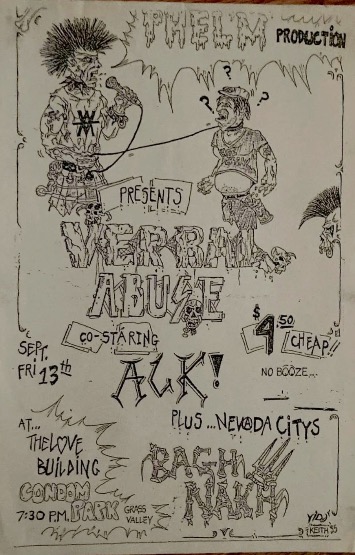 PHELM PRODUCTION
? ? ?
PRESENTS
VERBAL
ABUSE
CO-STARING
$4.50 CHEAP!!
SEPT.
FRI 13th
NO BOOZE...
ACK!
PLUS...NEVADA CITYS
AT...
THE LOVE
BUILDING
BAGH
NAKH
CONDOM
PARK GRASS
VALLEY
7:30 P.M.
KEITH